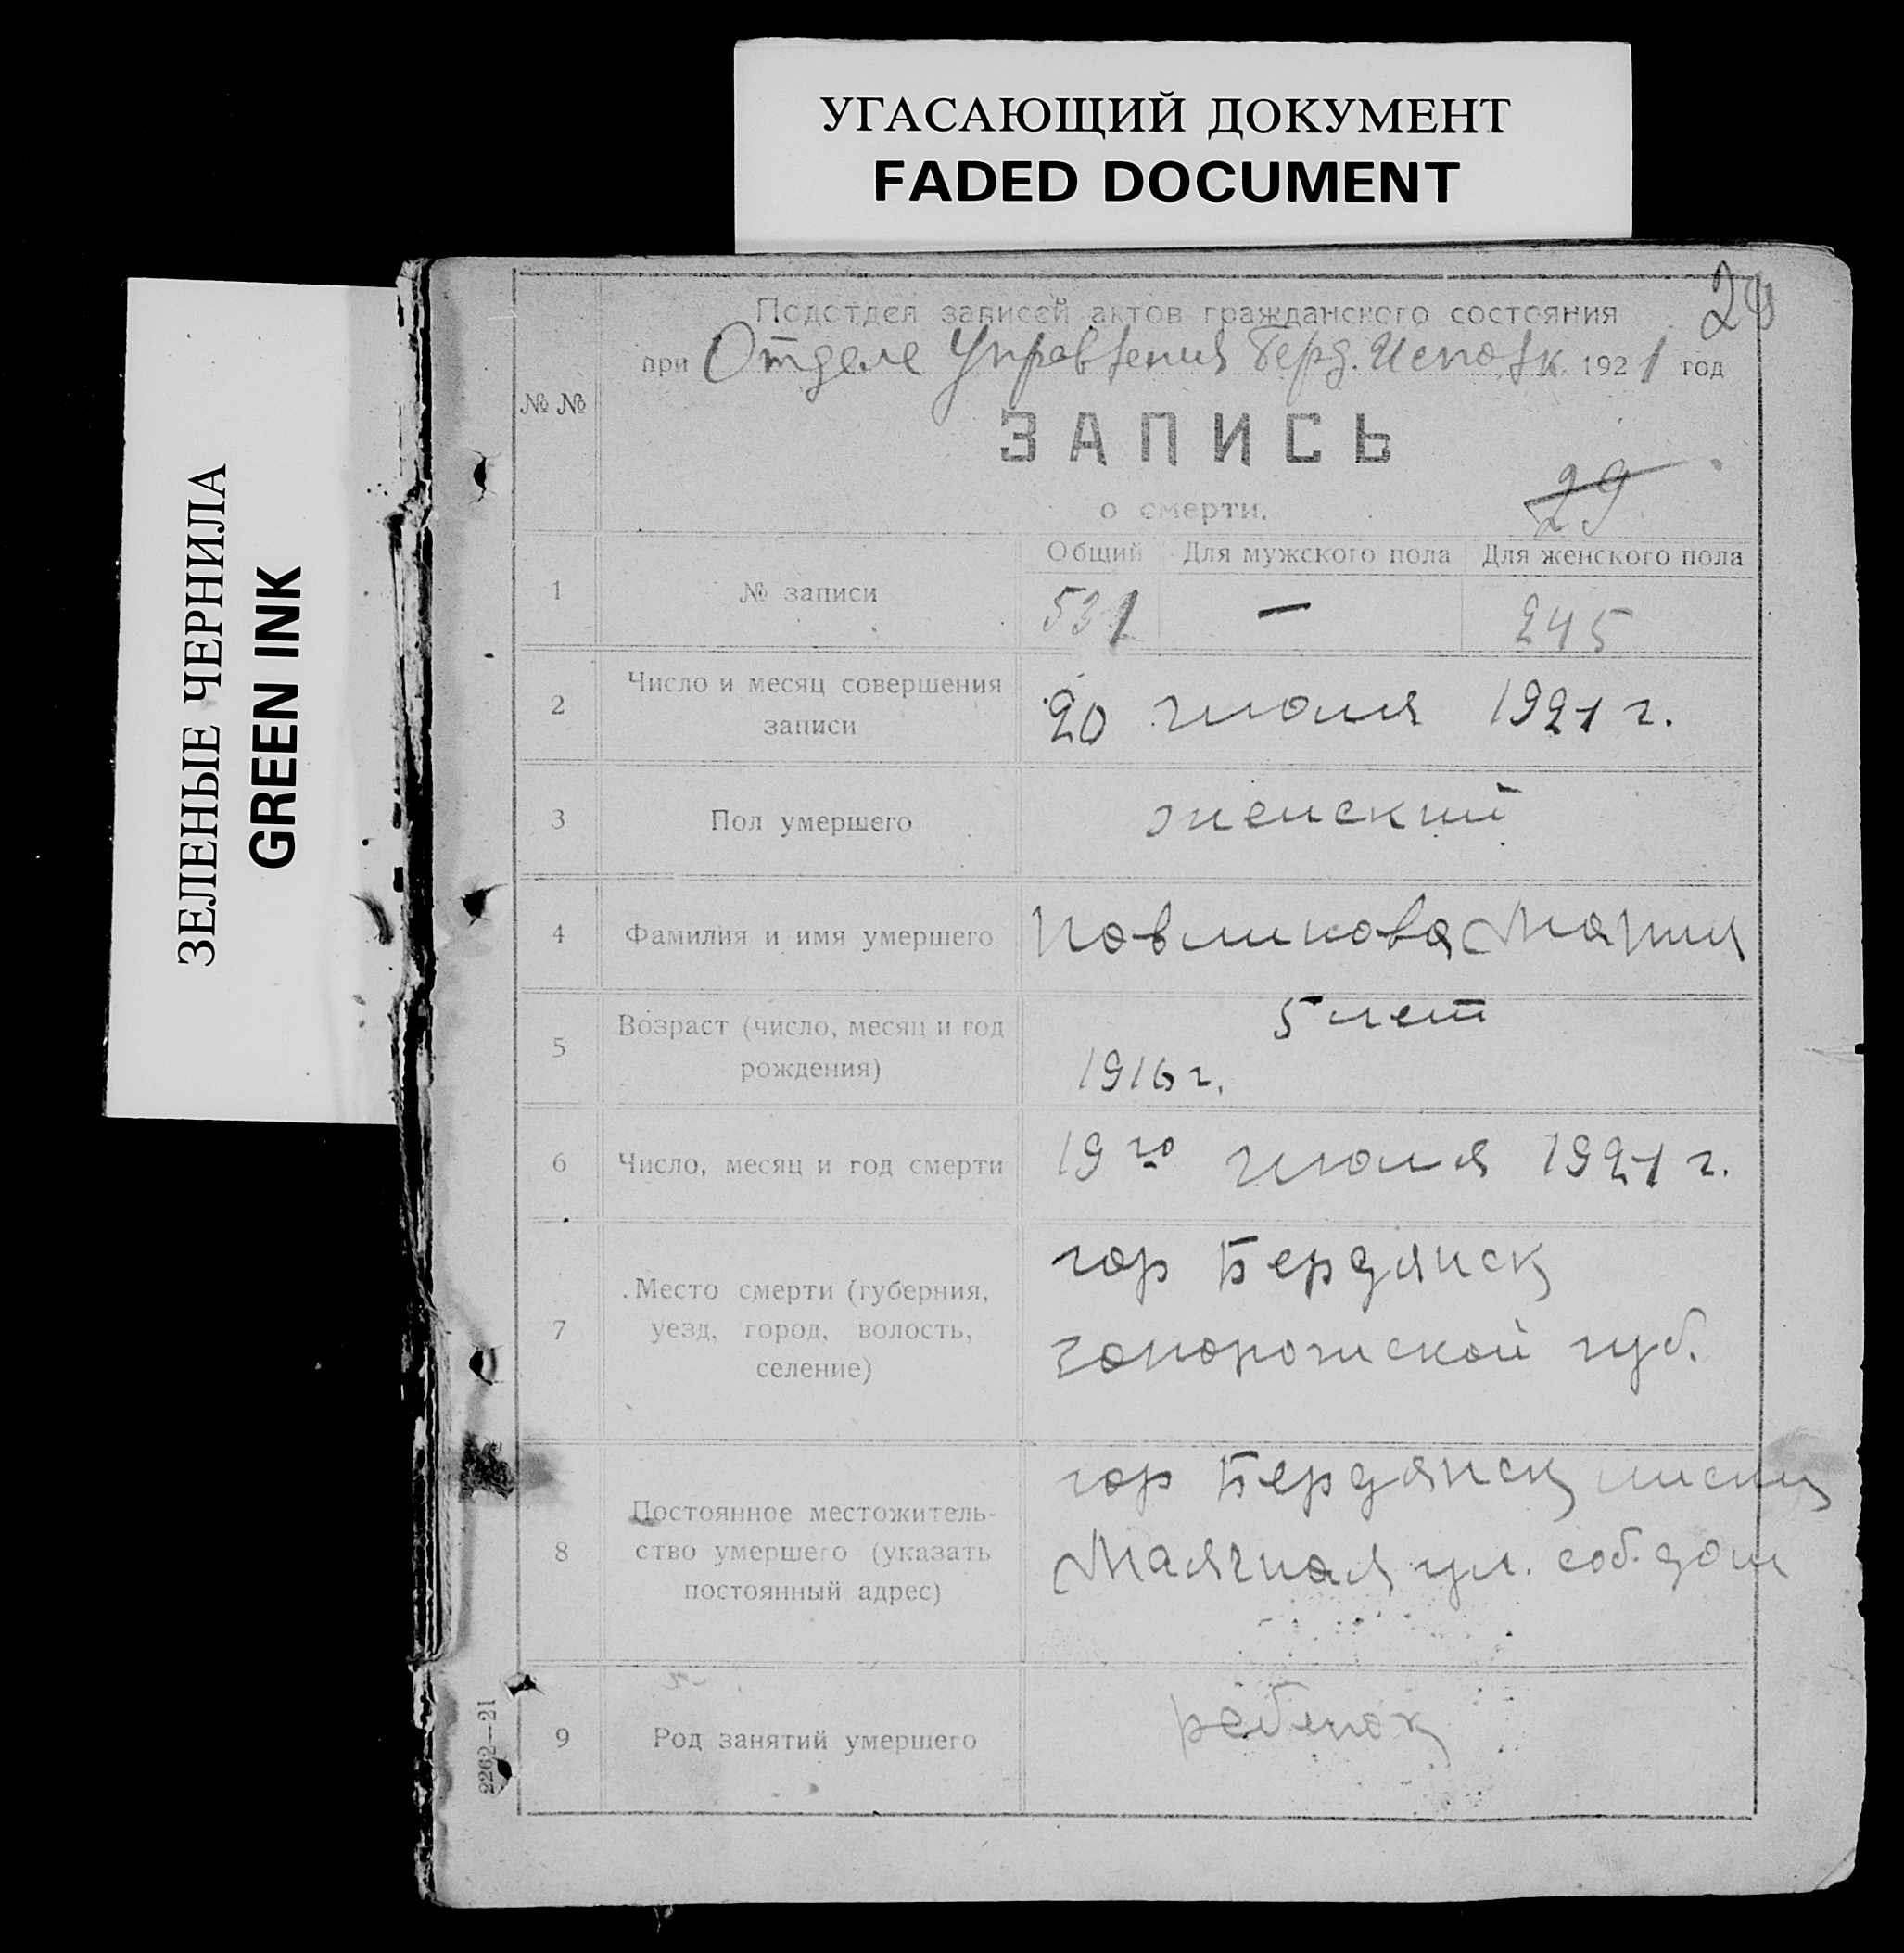 УГАСАЮЩИЙ ДОКУМЕНТ
FADED DOCUMENT
ЗЕЛЕНЫЕ ЧЕРНИЛА
GREEN INK
28
Подотдел записей актов гражданского состояния
при Отделе Управления Берд. Исполк 1921 год
№ №
ЗАПИСЬ
о смерти.
29
Общий Для мужского пола Для женского пола
1 № записи 531 — 245
2 Число и месяц совершения
записи
20 июля 1921 г.
3 Пол умершего женский
4 Фамилия и имя умершего Мария
5 Возраст (число, месяц и год
рождения)
5 лет
1916 г.
6 Число, месяц и год смерти 19го июля 1921 г.
7 Место смерти (губерния,
уезд, город, волость,
селение)
гор Бердянск
Запорожской губ.
8 Постоянное местожитель-
ство умершего (указать
постоянный адрес)
гор Бердянск
Маячная ул. соб. дом
9 Род занятий умершего ребенок
2262—21